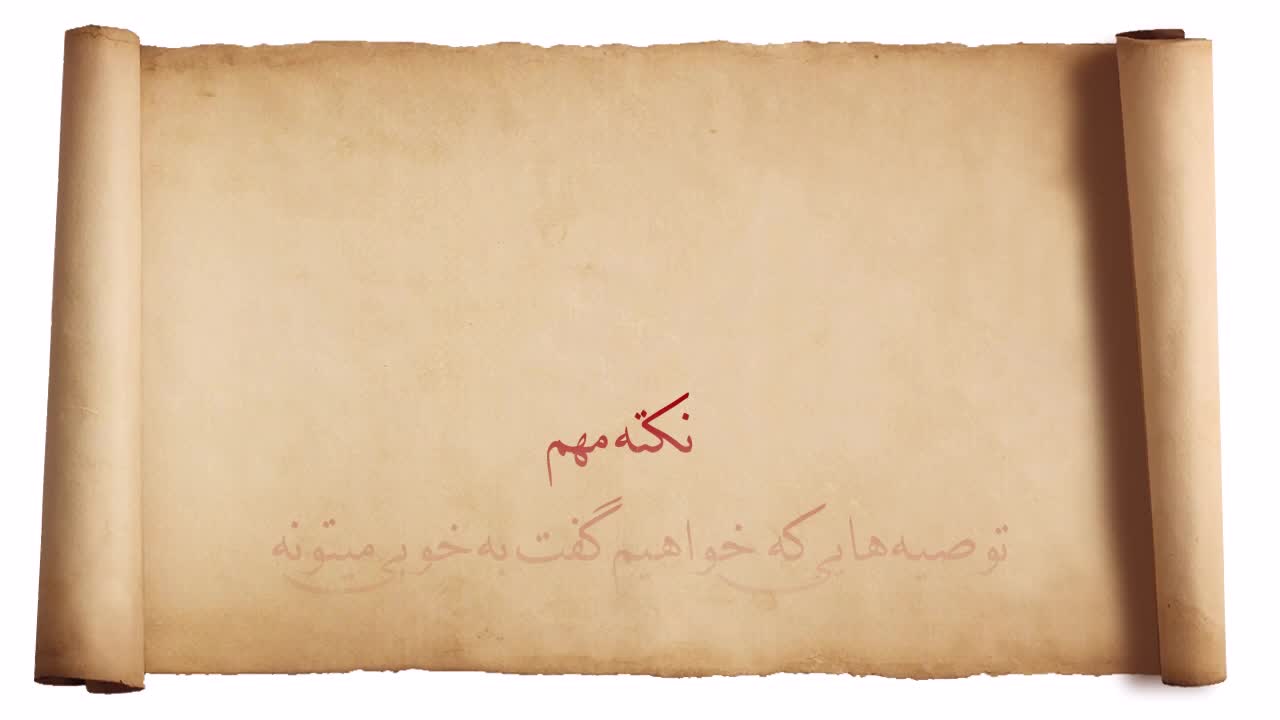 نکته مهم
توصیه‌هایی که خواهیم گفت به خوبی میتونه